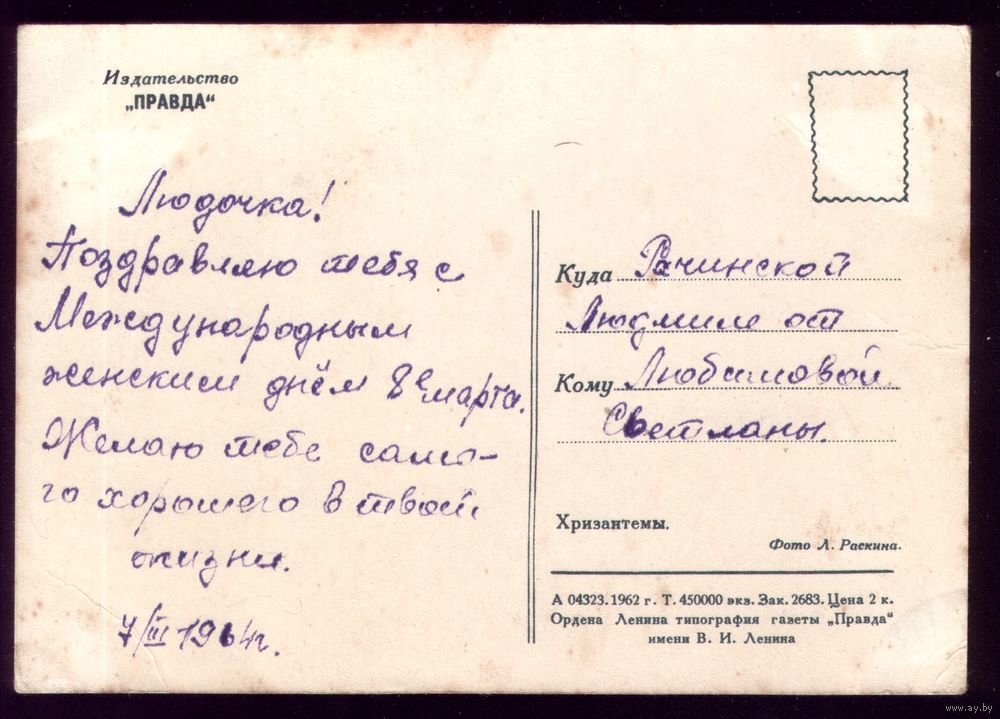 Издательство
„ПРАВДА“
Людочка!
Поздравляю тебя с
Международным
женским днём 8е марта.
Желаю тебе само-
го хорошего в твоей
жизни.
7/III 1964г.
Куда Рачинской
Людмиле от
Кому Любимовой
Светланы.
Хризантемы.
Фото Л. Раскина.
А 04323. 1962 г. Т. 450000 экз. Зак. 2683. Цена 2 к.
Ордена Ленина типография газеты „Правда“
имени В. И. Ленина
www.ay.by